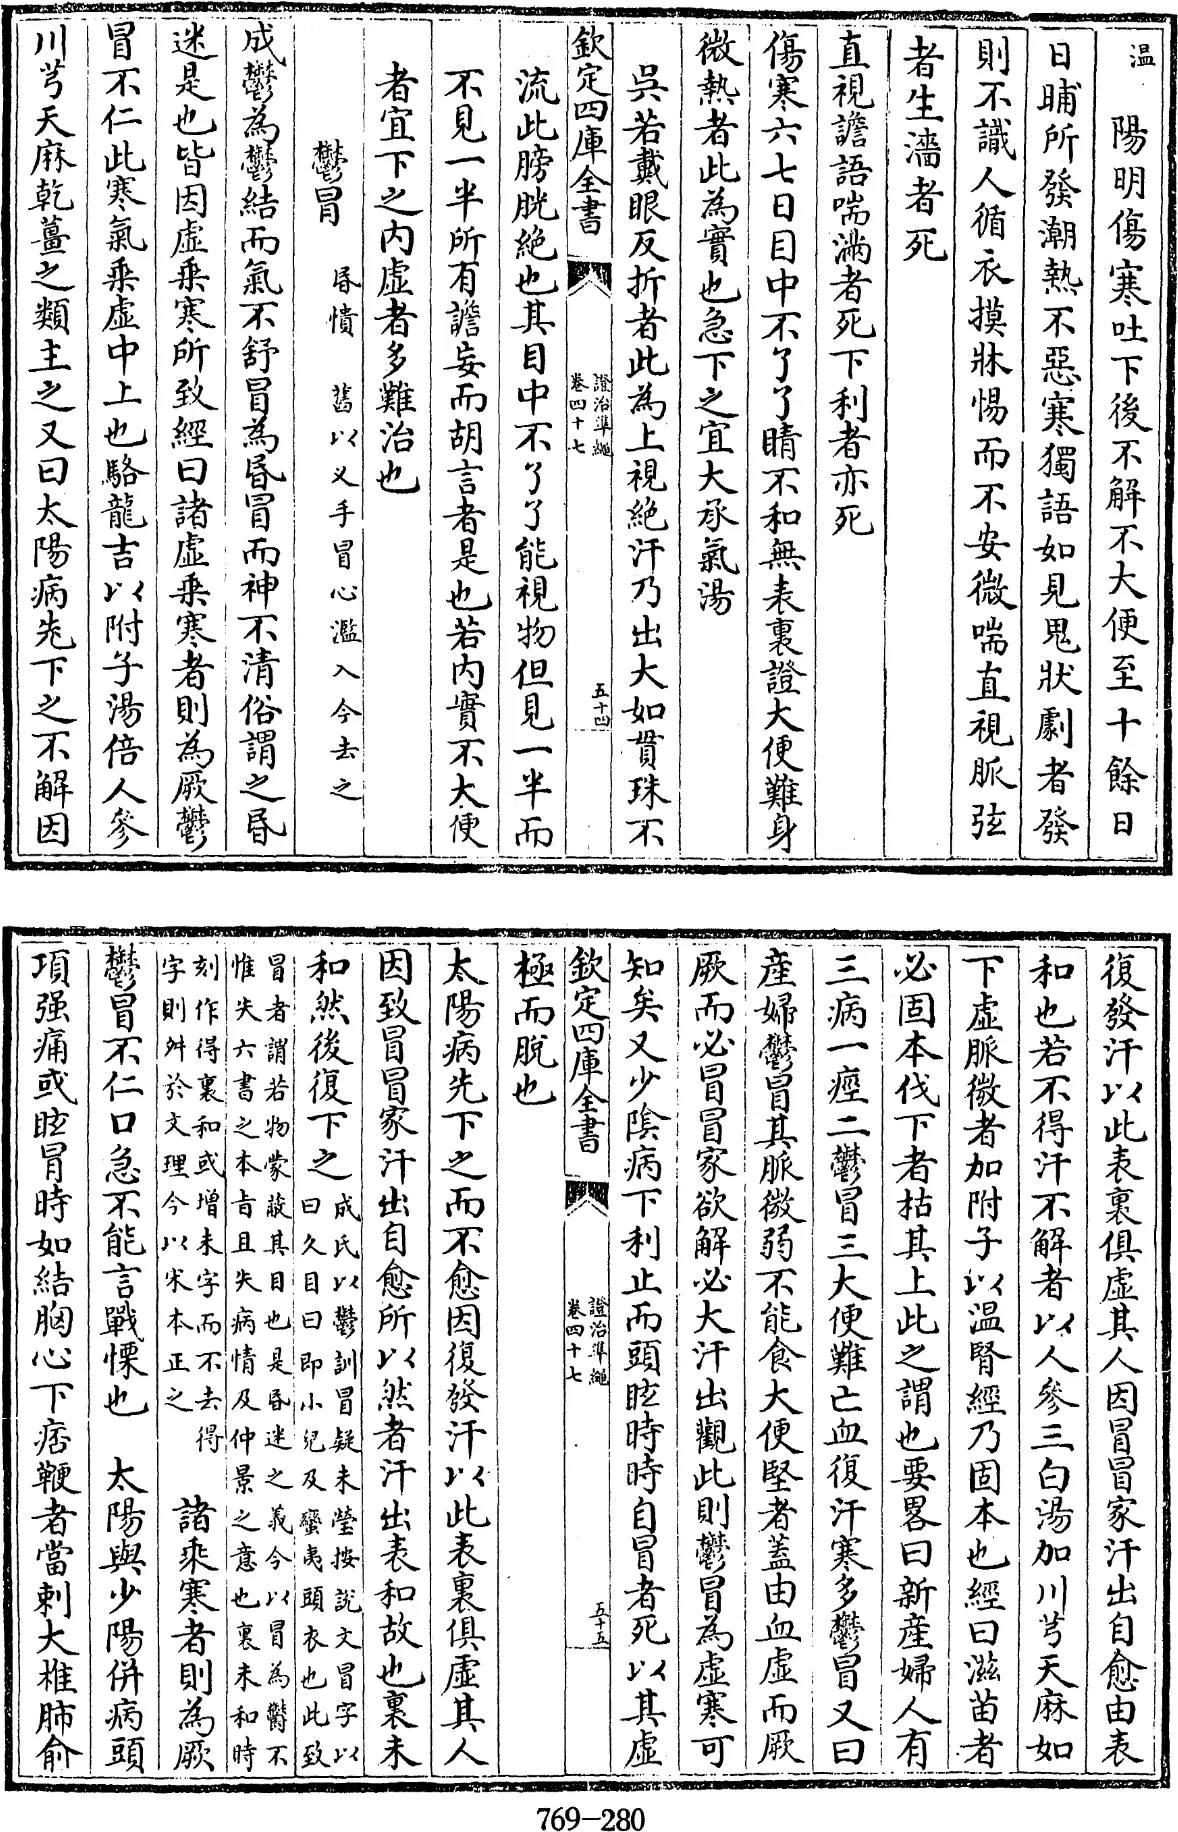 温　陽明傷寒吐下後不解不大便至十餘日
日晡所發潮熱不惡寒獨語如見鬼狀劇者發
則不識人循衣摸牀惕而不安微喘直視脈弦
者生濇者死
直視譫語喘滿者死下利者亦死
傷寒六七日目中不了了睛不和無表裏證大便難身
微熱者此為實也急下之宜大承氣湯
吳若戴眼反折者此為上視絶汗乃出大如貫珠不
欽定四庫全書
證治準繩
卷四十七
五十四
流此膀胱絶也其目中不了了能視物但見一半而
不見一半所有譫妄而胡言者是也若内實不大便
者宜下之内虛者多難治也
鬱冒　昏憒　舊以叉手冒心濫入今去之
成鬱為鬱結而氣不舒冒為昏冒而神不清俗謂之昏
迷是也皆因虛乘寒所致經曰諸虛乘寒者則為厥鬱
冒不仁此寒氣乘虛中上也駱龍吉以附子湯倍人參
川芎天麻乾薑之類主之又曰太陽病先下之不解因
復發汗以此表裏俱虛其人因冒冒家汗出自愈由表
和也若不得汗不解者以人參三白湯加川芎天麻如
下虛脈微者加附子以温腎經乃固本也經曰滋苗者
必固本伐下者枯其上此之謂也要畧曰新産婦人有
三病一痙二鬱冒三大便難亡血復汗寒多鬱冒又曰
産婦鬱冒其脈微弱不能食大便堅者蓋由血虛而厥
厥而必冒冒家欲解必大汗出觀此則鬱冒為虛寒可
知矣又少陰病下利止而頭眩時時自冒者死以其虛
欽定四庫全書
證治準繩
卷四十七
五十五
極而脫也
太陽病先下之而不愈因復發汗以此表裏俱虛其人
因致冒冒家汗出自愈所以然者汗出表和故也裏未
和然後復下之
成氏以鬱訓冒疑未瑩按說文冒字以
曰久目曰即小兒及蠻夷頭衣也此致
冒者謂若物蒙蔽其目也是昏迷之義今以冒為鬱不
惟失六書之本旨且失病情及仲景之意也裏未和時
刻作得裏和或增未字而不去得
字則舛於文理今以宋本正之
諸乘寒者則為厥
鬱冒不仁口急不能言戰慄也　太陽與少陽併病頭
項强痛或眩冒時如結胸心下痞鞕者當刺大椎肺俞
769-280